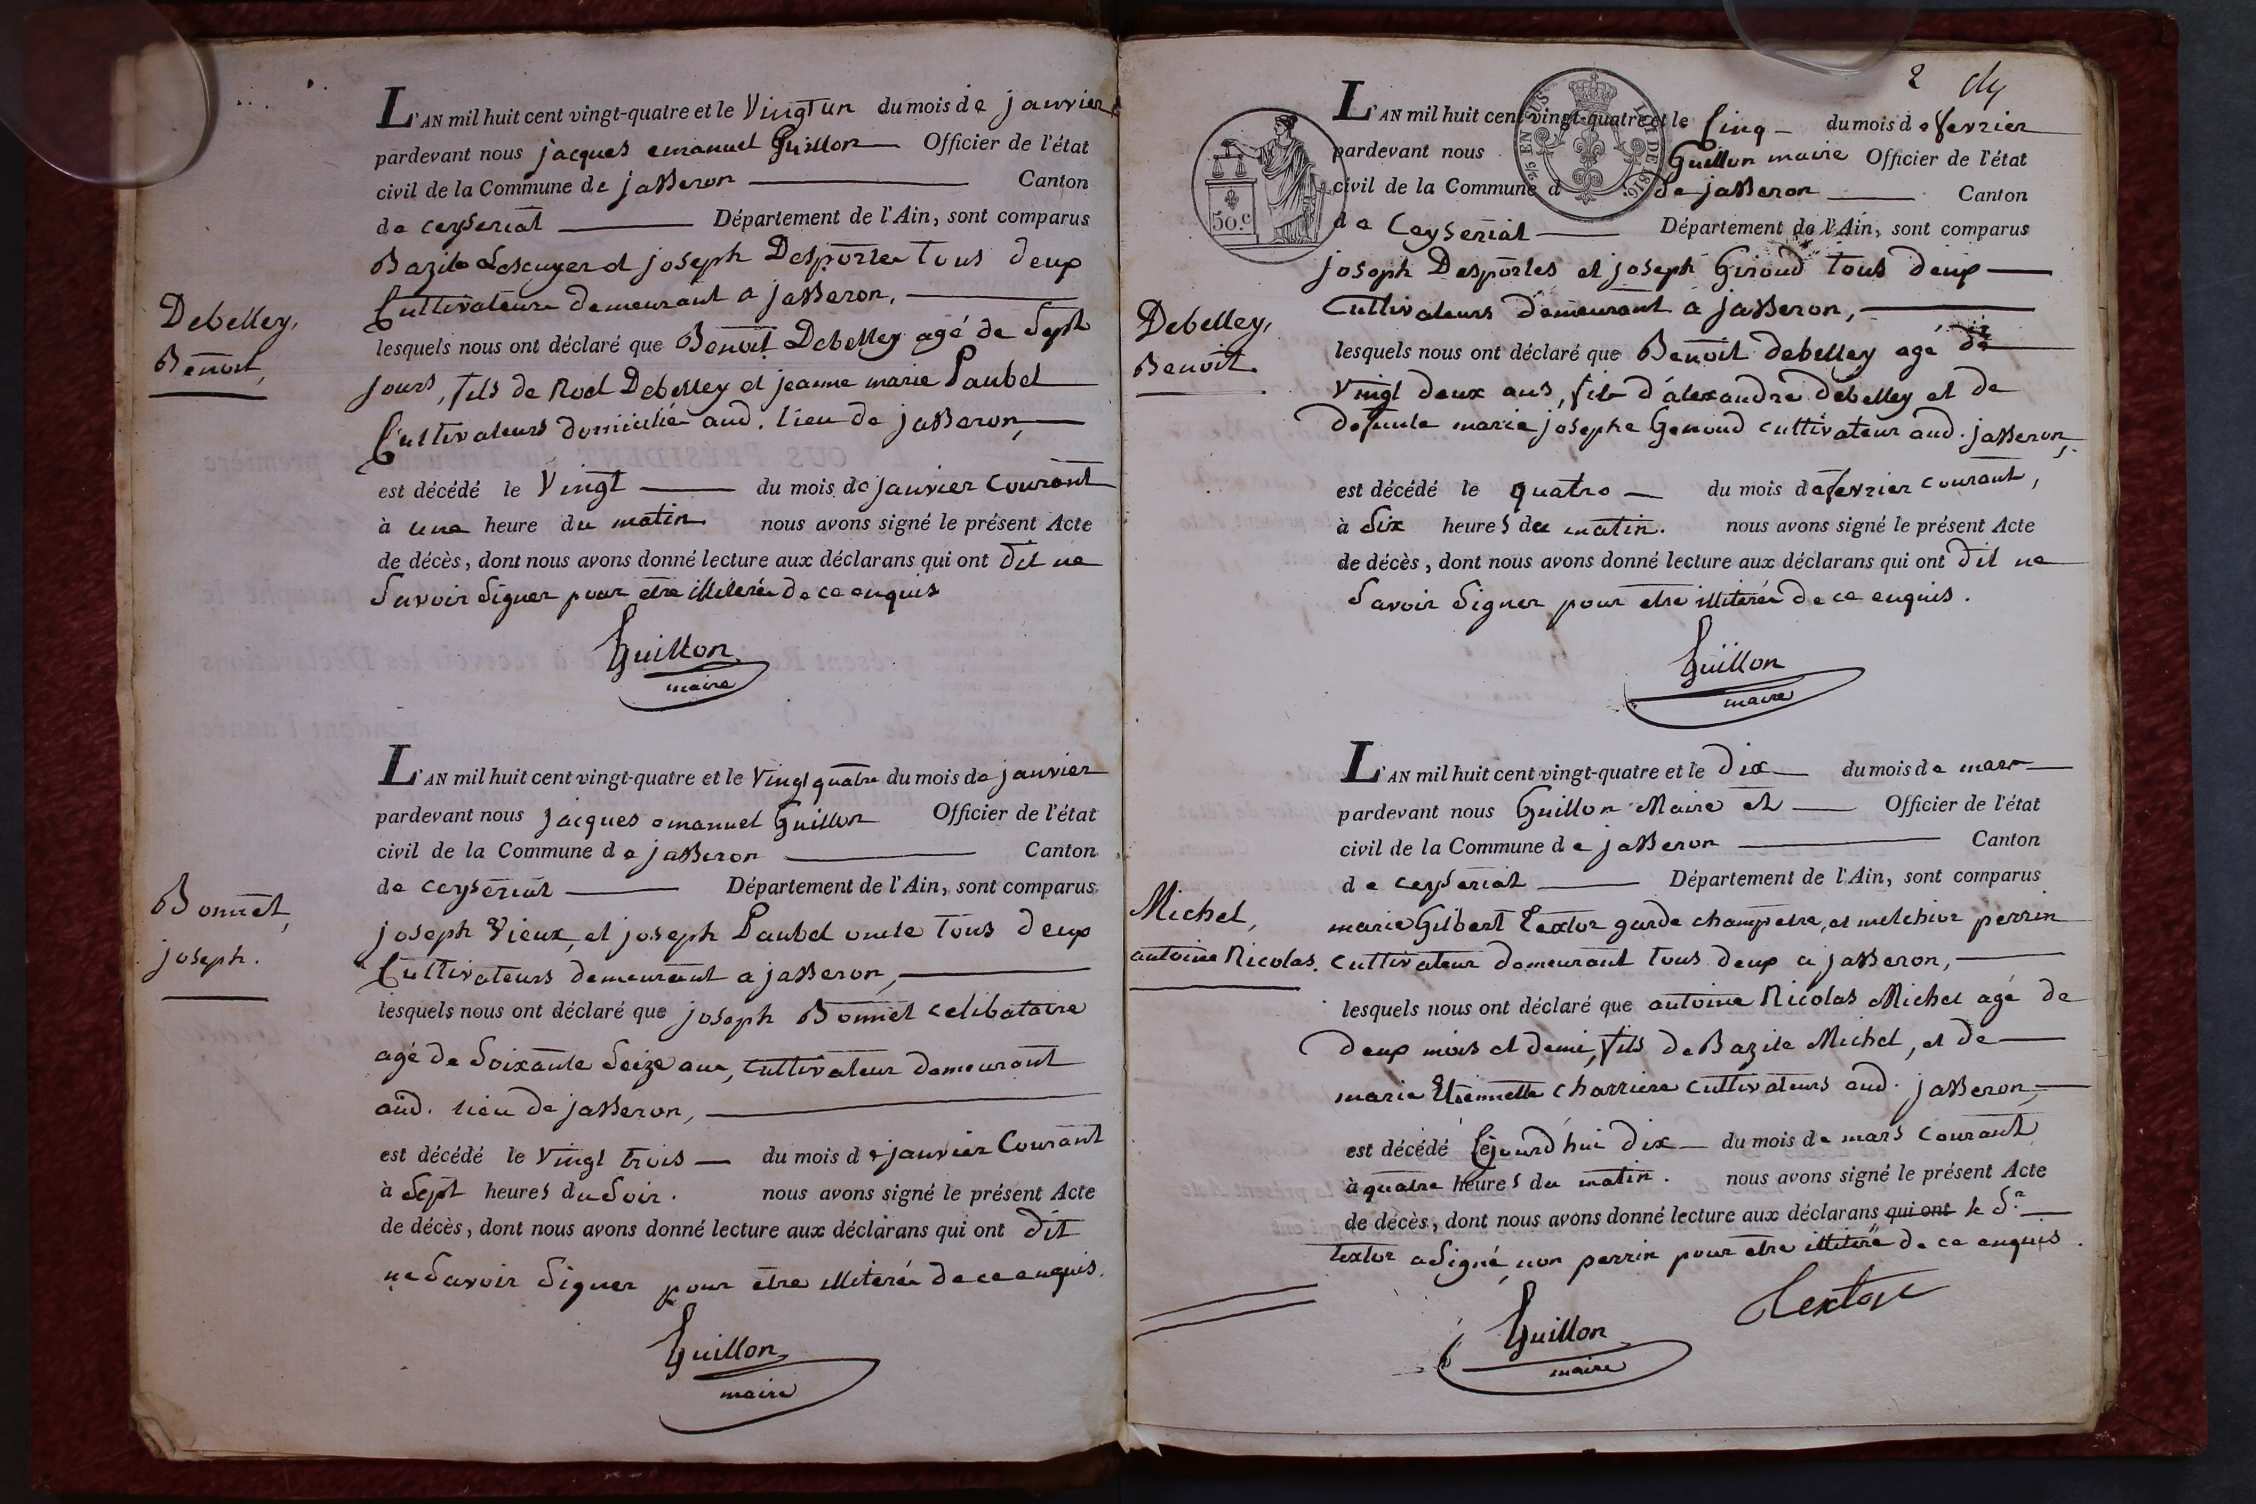 L'AN mil huit cent vingt-quatre et le Vingt un du mois de janvier
pardevant nous jacques emanuel Guillon Officier de l'état
civil de la Commune de jasseron Canton
de ceyseriat Département de l'Ain, sont comparus
Bazile Lescuyer et joseph Desportes tous deux
Cultivateurs demeurant a jasseron,
Debelley,
Benoit,
lesquels nous ont déclaré que Benoit Debelley agé de Sept
jours, fils de Noel Debelley et jeanne marie Paubel
Cultivateurs domiciliés aud. lieu de jasseron,
est décédé le Vingt du mois de janvier Courant
à une heure du matin nous avons signé le présent Acte
de décès, dont nous avons donné lecture aux déclarans qui ont dit ne
Savoir Signer pour etre illiterés de ce enquis
Guillon
maire
L'AN mil huit cent vingt-quatre et le Vingt quatre du mois de janvier
pardevant nous jacques emanuel Guillon Officier de l'état
civil de la Commune de jasseron Canton
de ceyseriat Département de l'Ain, sont comparus
Bonnet,
joseph.
joseph Vieux, et joseph Paubel oncle tous deux
Cultivateurs demeurant a jasseron,
lesquels nous ont déclaré que joseph Bonnet celibataire
agé de Soixante Seize ans, cultivateur demeurant
aud. lieu de jasseron,
est décédé le Vingt trois du mois de janvier Courant
à Sept heures du Soir. nous avons signé le présent Acte
de décès, dont nous avons donné lecture aux déclarans qui ont dit
ne Savoir Signer pour etre illiterés de ce enquis.
Guillon
maire
2
L'AN mil huit cent vingt-quatre et le Cinq du mois de fevrier
pardevant nous Guillon maire Officier de l'état
civil de la Commune d de jasseron Canton
de Ceyseriat Département de l'Ain, sont comparus
EN SUS
LOI DE 1816.
50.c
joseph Desportes et joseph Giroud tous deux
Cultivateurs demeurant a jasseron,
Debelley,
Benoit.
lesquels nous ont déclaré que Benoit debelley agé de
Vingt deux ans, fils d'alexandre debelley et de
defunte marie josephe Genoud cultivateur aud. jasseron,
est décédé le quatre du mois de fevrier courant,
à Six heures du matin. nous avons signé le présent Acte
de décès, dont nous avons donné lecture aux déclarans qui ont dit ne
Savoir Signer pour etre illiterés de ce enquis.
Guillon
maire
L'AN mil huit cent vingt-quatre et le dix du mois de mars
pardevant nous Guillon Maire et Officier de l'état
civil de la Commune de jasseron Canton
de ceyseriat Département de l'Ain, sont comparus
Michel,
antoine Nicolas.
marie Gilbert Textor garde champetre, et melchior perrin
cultivateur demeurant tous deux a jasseron,
lesquels nous ont déclaré que antoine Nicolas Michel agé de
deux mois et demi, fils de Bazile Michel, et de
marie Etiennette charriere cultivateurs aud. jasseron,
est décédé Cejourd'hui dix du mois de mars courant
à quatre heures du matin. nous avons signé le présent Acte
de décès, dont nous avons donné lecture aux déclarans qui ont le Sr
textor a Signé, non perrin pour etre illiteré de ce enquis.
Guillon
maire
Textor